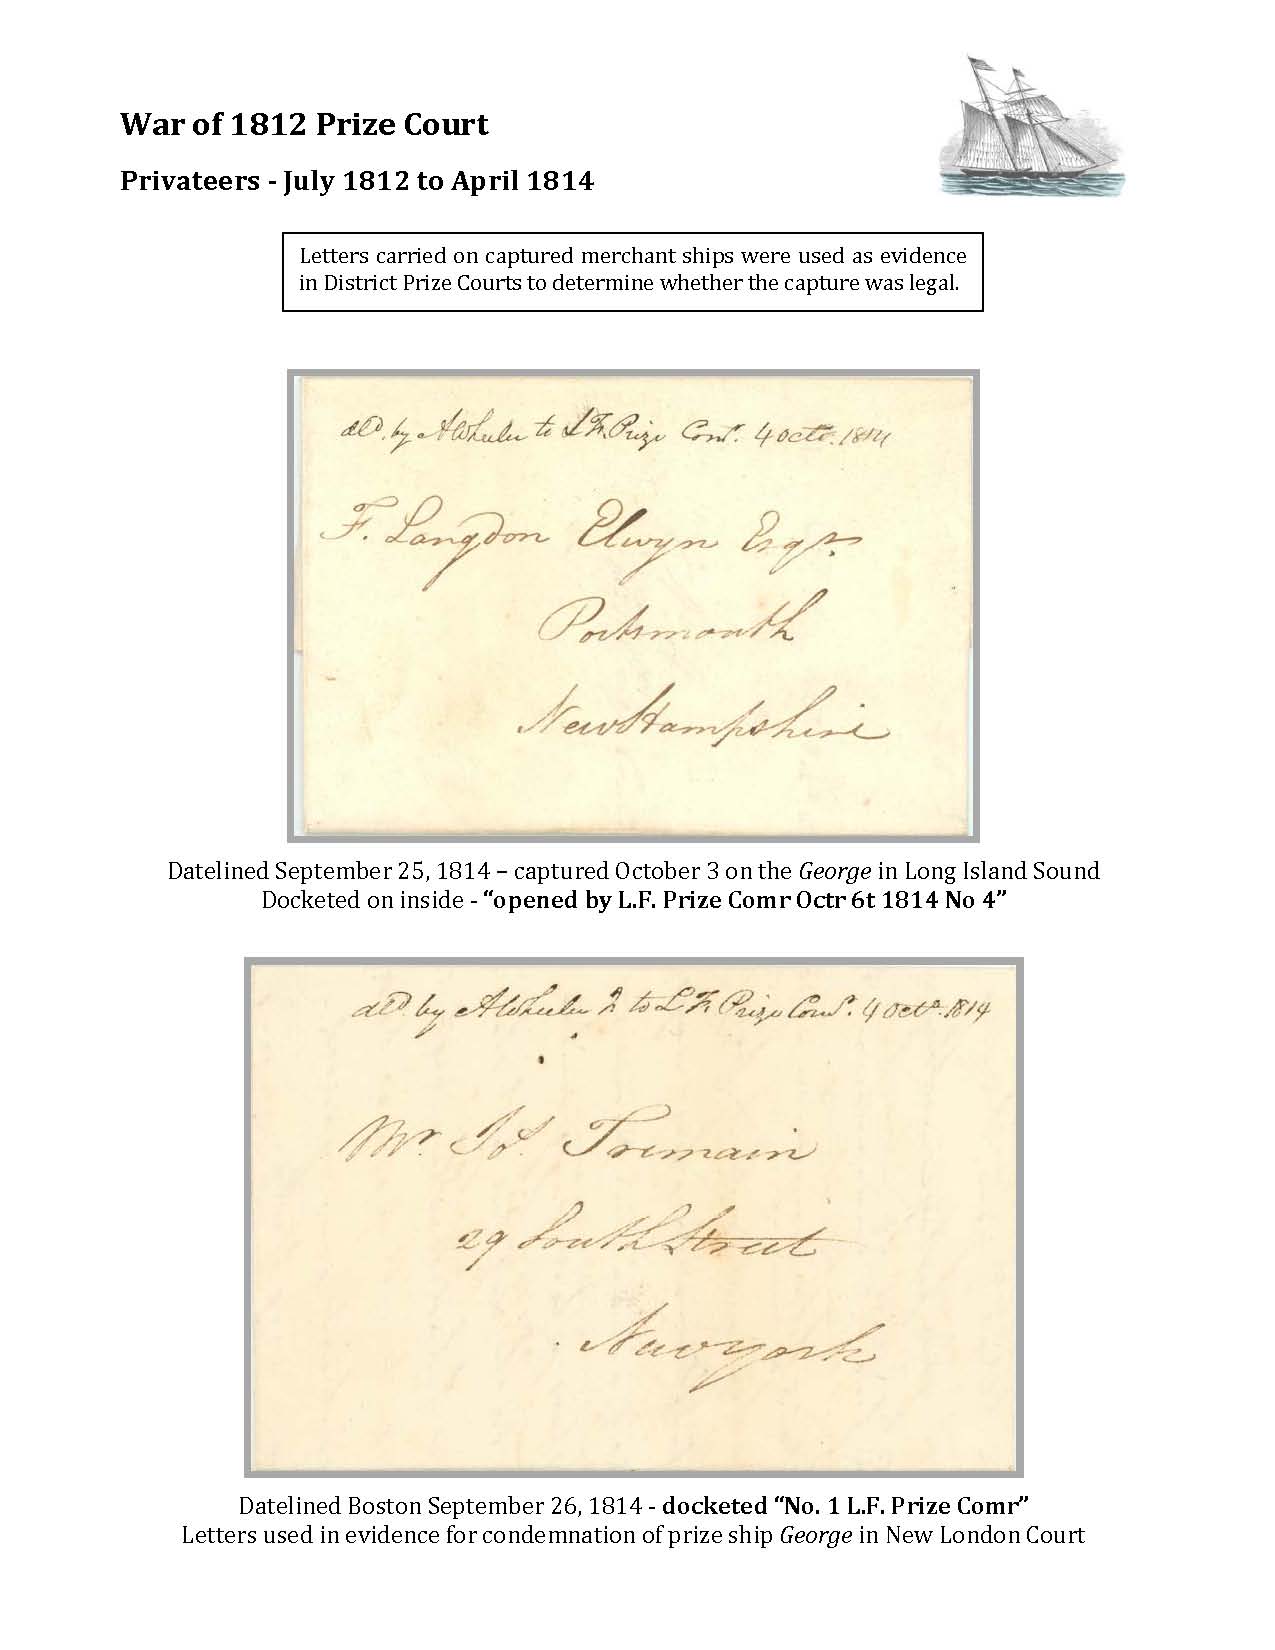 War of 1812 Prize Court
Privateers - July 1812 to April 1814
Letters carried on captured merchant ships were used as evidence
in District Prize Courts to determine whether the capture was legal.
dld. by A Wheeler to L F. Prize Comr. 4 Octr. 1814
F. Langdon Elwyn Esqr.
Portsmouth
New Hampshire
Datelined September 25, 1814 – captured October 3 on the George in Long Island Sound
Docketed on inside - “opened by L.F. Prize Comr Octr 6t 1814 No 4”
dld by A Wheeler to L F. Prize Comr. 4 Octr. 1814
Mr. Tremain
29 South Street
New york
Datelined Boston September 26, 1814 - docketed “No. 1 L.F. Prize Comr”
Letters used in evidence for condemnation of prize ship George in New London Court